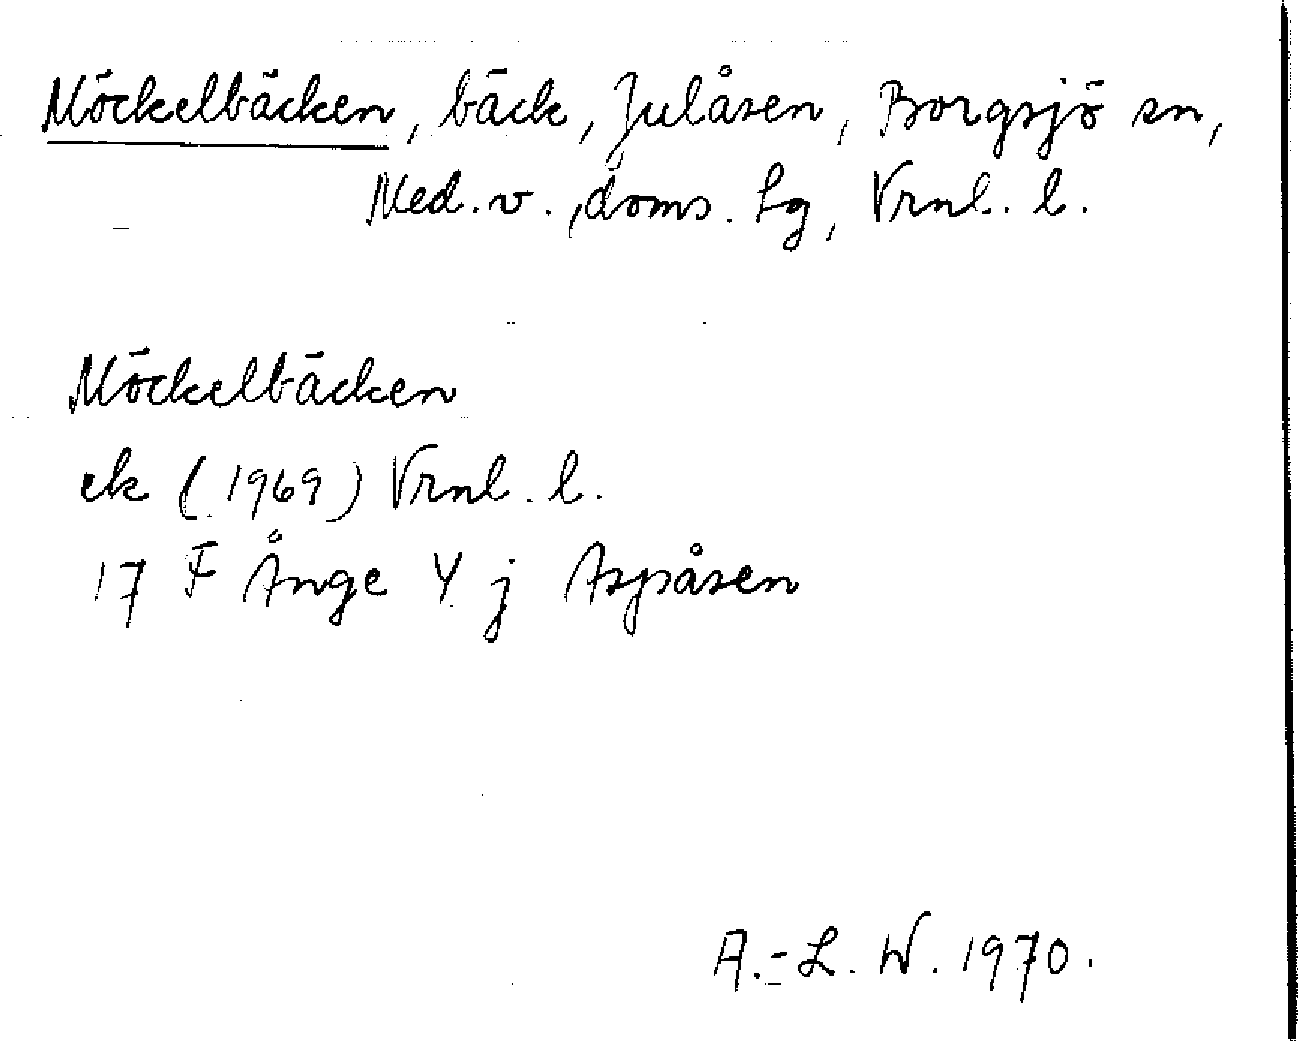 Möckelbäcken, bäck, Julåsen, Borgsjö sn,
Med. v., doms. Lg, Vrnl. l.
Möckelbäcken
ek (1969) Vrnl. l.
17 F Ånge Y j Aspåsen
A.-L. W. 1970.